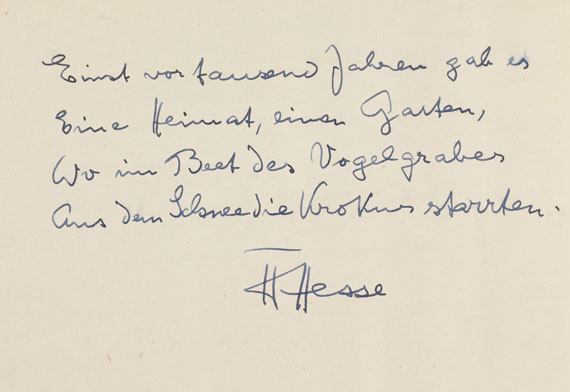 Einst vor tausend Jahren gab es
Eine Heimat, einen Garten,
Wo im Beet des Vogelgrabes
Aus dem Schnee die Krokus starrten.
HHesse